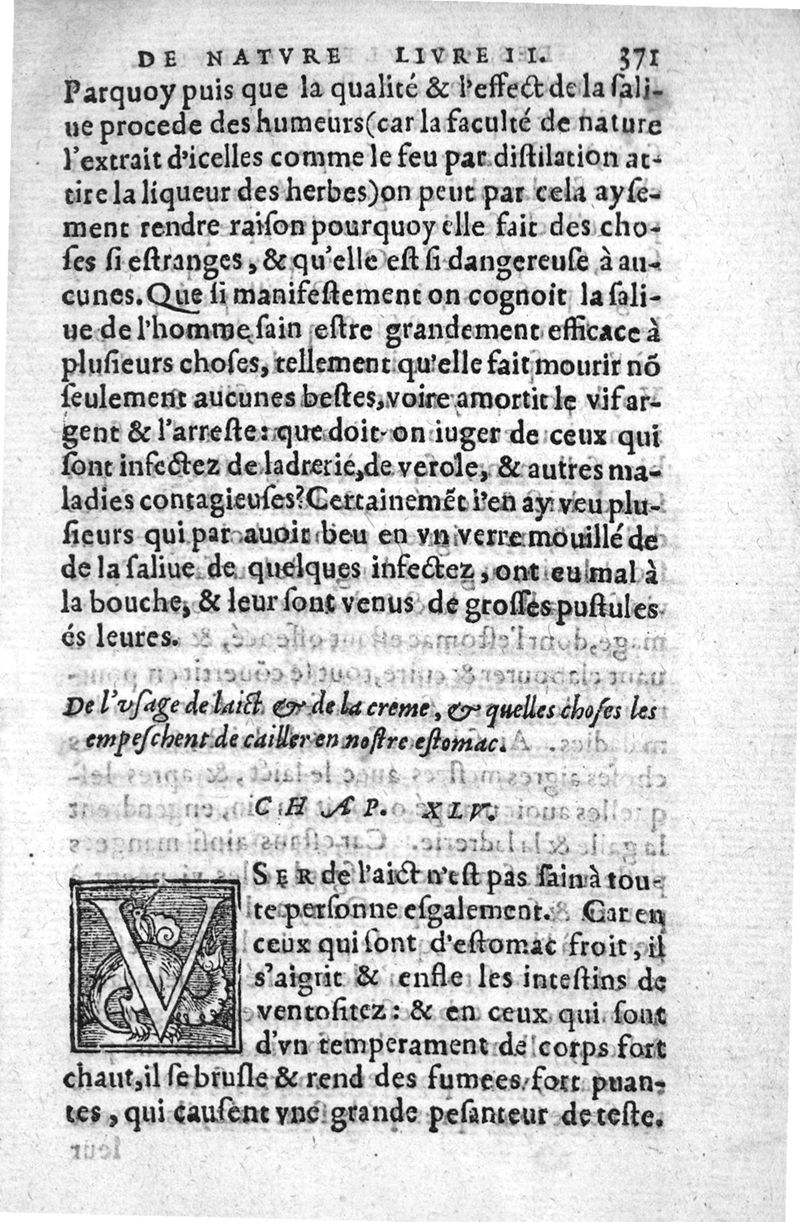 DE NATVRE LIVRE II. 371
Parquoy puis que la qualité & l'effect de la ſali-
ue procede des humeurs(car la faculté de nature
l'extrait d'icelles comme le feu par diſtilation at-
tire la liqueur des herbes)on peut par cela ayſe-
ment rendre raiſon pourquoy elle fait des cho-
ſes ſi eſtranges, & qu'elle eſt ſi dangereuſe à au-
cunes. Que ſi manifeſtement on cognoit la ſali-
ue de l'homme ſain eſtre grandement efficace à
pluſieurs choſes, tellement qu'elle fait mourir nō
ſeulement aucunes beſtes, voire amortit le vif ar-
gent & l'arreſte: que doit-on iuger de ceux qui
ſont infectez de ladrerie, de verole, & autres ma-
ladies contagieuſes? Certainemēt i'en ay veu plu-
ſieurs qui par auoir beu en vn verre mouillé de
de la ſaliue de quelques infectez, ont eu mal à
la bouche, & leur ſont venus de groſſes puſtules
és leures.
De l'vſage de laict & de la creme, & quelles choſes les
empeſchent de cailler en noſtre eſtomac.
CHAP. XLV.
VSER de l'aict n'eſt pas ſain à tou-
te perſonne eſgalement. Car en
ceux qui ſont d'eſtomac froit, il
s'aigrit & enfle les inteſtins de
ventoſitez: & en ceux qui ſont
d'vn temperament de corps fort
chaut, il ſe bruſle & rend des fumees fort puan-
tes, qui cauſent vne grande peſanteur de teſte.